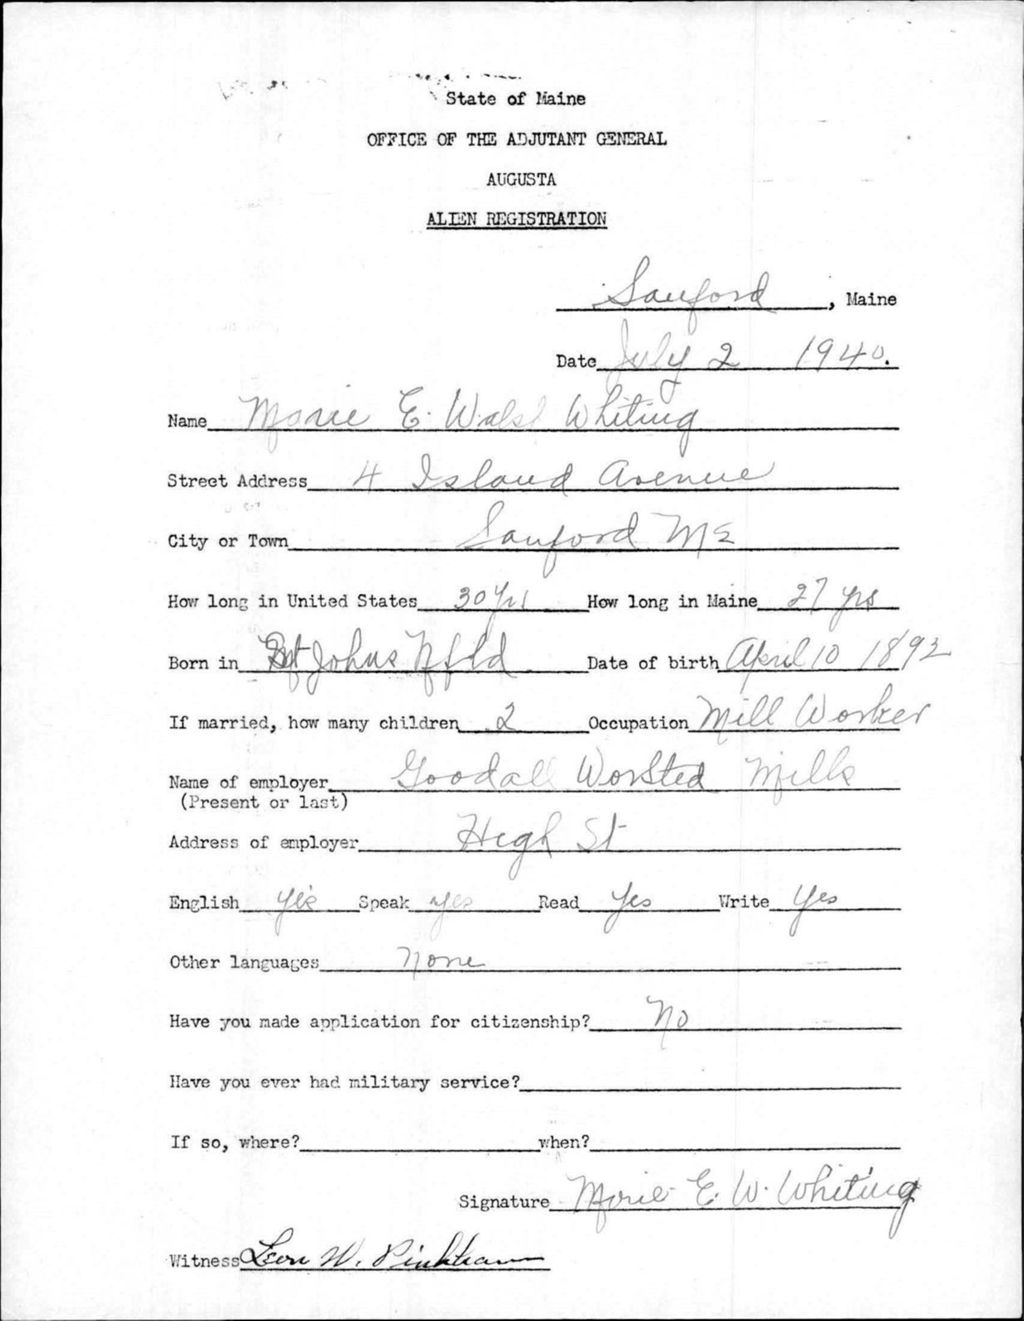 State of Maine
OFFICE OF THE ADJUTANT GENERAL
AUGUSTA
ALIEN REGISTRATION
Sanford, Maine
Date July 2 1940.
Name Marie E. Walsh Whiting
Street Address 4 Island Avenue
City or Town Sanford Me
How long in United States 30 yrs How long in Maine 27 yrs
Born in St Johns Nfld Date of birth April 10 1892
If married, how many children 2 Occupation Mill Worker
Name of employer Goodall Worsted Mills
(Present or last)
Address of employer High St
English yes Speak yes Read Yes Write Yes
Other languages None
Have you made application for citizenship? No
Have you ever had military service?
If so, where? when?
Signature Marie E. W. Whiting
Witness Leon W. Pinkham